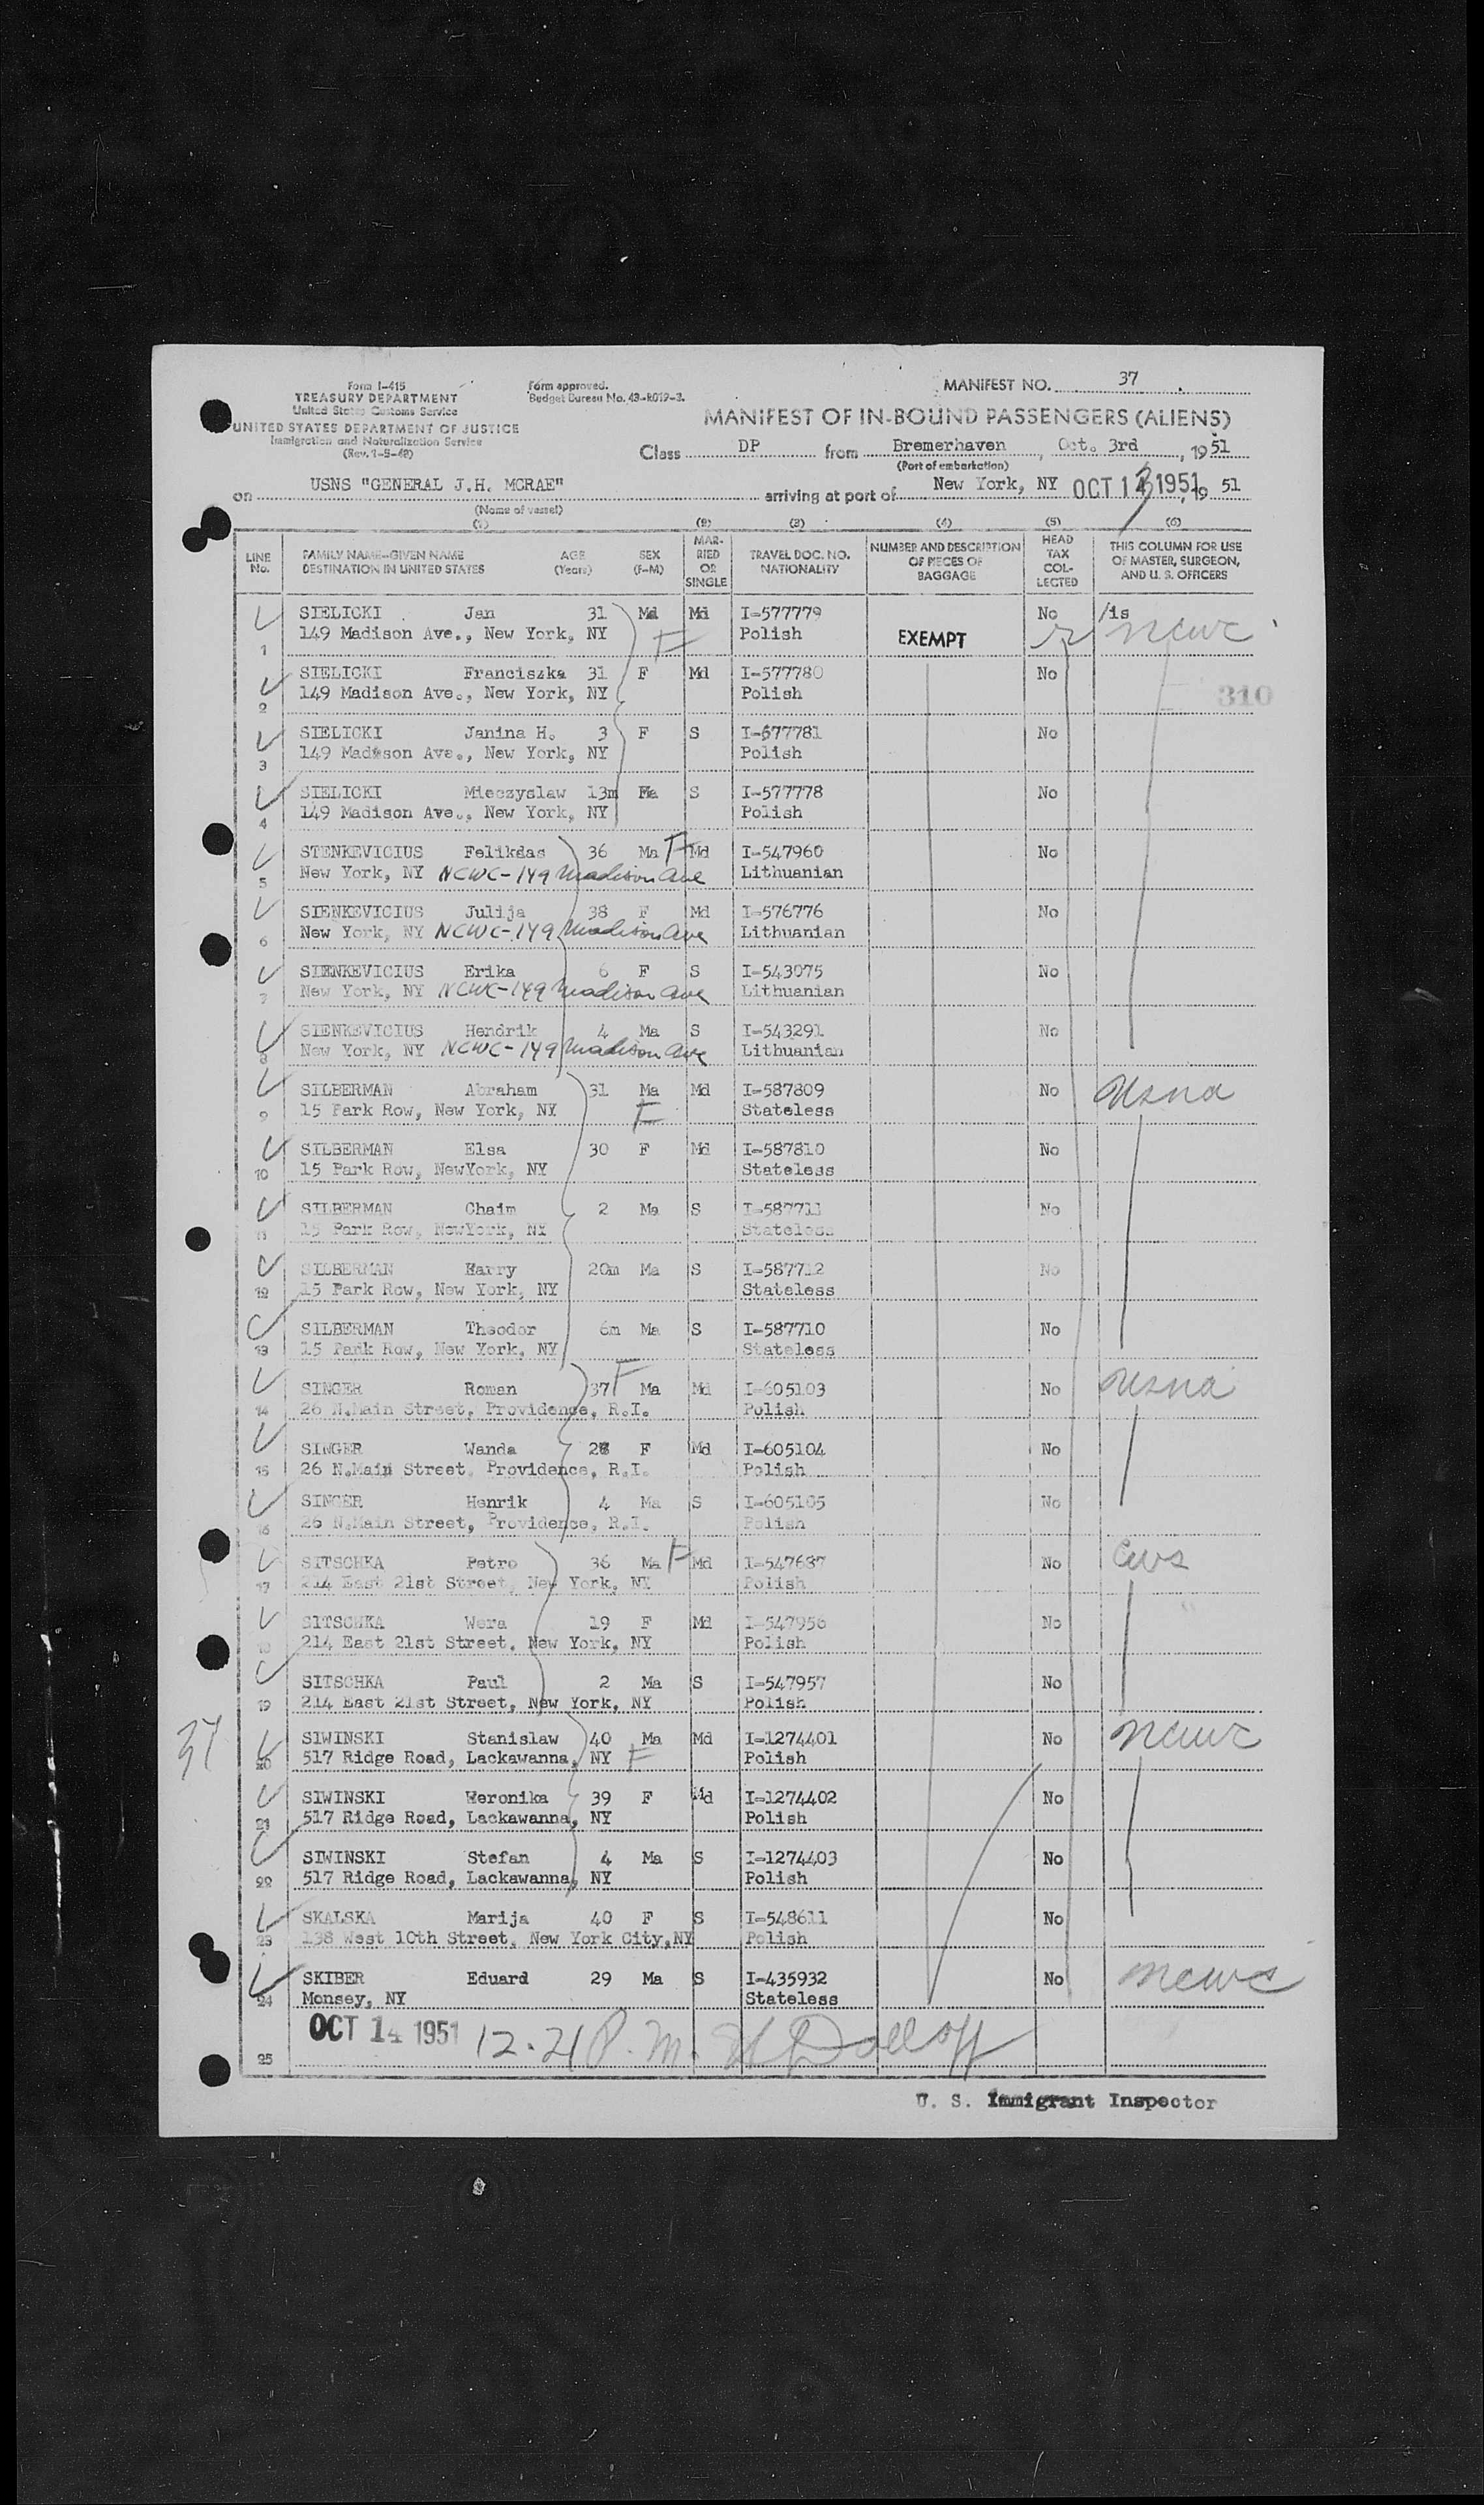 Form I-415
TREASURY DEPARTMENT
United States Customs Service
UNITED STATES DEPARTMENT OF JUSTICE
Immigration and Naturalization Service
(Rev. 1-5-49)
Form approved.
Budget Bureau No. 43-R019-3.
MANIFEST NO. 37
MANIFEST OF IN-BOUND PASSENGERS (ALIENS)
Class DP from Bremerhaven, Oct. 3rd, 1951
(Port of embarkation)
on USNS "GENERAL J.H. MCRAE" arriving at port of New York, NY OCT 13 1951, 19 51
(Name of vessel)
(1) (2) (3) (4) (5) (6)
LINE No. FAMILY NAME—GIVEN NAME DESTINATION IN UNITED STATES AGE (Years) SEX (F-M) MARRIED OR SINGLE TRAVEL DOC. NO. NATIONALITY NUMBER AND DESCRIPTION OF PIECES OF BAGGAGE HEAD TAX COLLECTED THIS COLUMN FOR USE OF MASTER, SURGEON, AND U. S. OFFICERS
SIELICKI Jan 31 Md Md I-577779 No /is
1 149 Madison Ave., New York, NY F Polish EXEMPT ncwc
SIELICKI Franciszka 31 F Md I-577780 No
2 149 Madison Ave., New York, NY Polish 310
SIELICKI Janina H. 3 F S I-577781 No
3 149 Madison Ave., New York, NY Polish
SIELICKI Mieczyslaw 13m Ma S I-577778 No
4 149 Madison Ave., New York, NY Polish
STENKEVICIUS Felikdas 36 Ma F Md I-547960 No
5 New York, NY NCWC-149 Madison Ave Lithuanian
SIENKEVICIUS Julija 38 F Md I-576776 No
6 New York, NY NCWC-149 Madison Ave Lithuanian
SIENKEVICIUS Erika 6 F S I-543075 No
7 New York, NY NCWC-149 Madison Ave Lithuanian
SIENKEVICIUS Hendrik 4 Ma S I-543291 No
8 New York, NY NCWC-149 Madison Ave Lithuanian
SILBERMAN Abraham 31 Ma Md I-587809 No usna
9 15 Park Row, New York, NY F Stateless
SILBERMAN Elsa 30 F Md I-587810 No
10 15 Park Row, NewYork, NY Stateless
SILBERMAN Chaim 2 Ma S I-587711 No
11 15 Park Row, NewYork, NY Stateless
SILBERMAN Harry 20m Ma S I-587712 No
12 15 Park Row, New York, NY Stateless
SILBERMAN Theodor 6m Ma S I-587710 No
13 15 Park Row, New York, NY Stateless
SINGER Roman 37 F Ma Md I-605103 No usna
14 26 N.Main Street, Providence, R.I. Polish
SINGER Wanda 28 F Md I-605104 No
15 26 N.Main Street, Providence, R.I. Polish
SINGER Henrik 4 Ma S I-605105 No
16 26 N.Main Street, Providence, R.I. Polish
SITSCHKA Petro 36 Ma F Md I-547687 No cws
17 214 East 21st Street, New York, NY Polish
SITSCHKA Wera 19 F Md I-547956 No
18 214 East 21st Street, New York, NY Polish
SITSCHKA Paul 2 Ma S I-547957 No
19 214 East 21st Street, New York, NY Polish
37
SIWINSKI Stanislaw 40 Ma Md I-1274401 No ncwc
20 517 Ridge Road, Lackawanna, NY F Polish
SIWINSKI Weronika 39 F Md I-1274402 No
21 517 Ridge Road, Lackawanna, NY Polish
SIWINSKI Stefan 4 Ma S I-1274403 No
22 517 Ridge Road, Lackawanna, NY Polish
SKALSKA Marija 40 F S I-548611 No
23 138 West 10th Street, New York City,NY Polish
SKIBER Eduard 29 Ma S I-435932 No ncwc
24 Monsey, NY Stateless
OCT 14 1951 12.21 P.M.
25
U. S. Immigrant Inspector